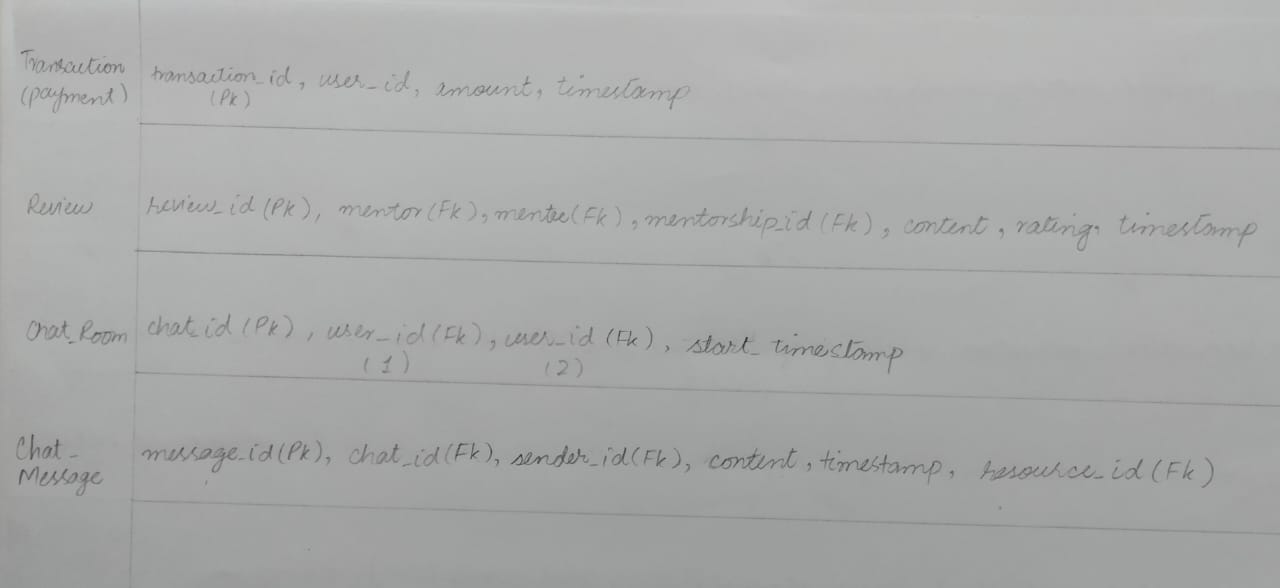 Transaction
(payment)
transaction_id, user_id, amount, timestamp
(Pk)
Review
review_id (Pk), mentor (Fk), mentee (Fk), mentorship_id (Fk), content, rating, timestamp
Chat_Room
chat_id (Pk), user_id (Fk), user_id (Fk), start_timestamp
(1) (2)
Chat_
Message
message_id (Pk), chat_id (Fk), sender_id (Fk), content, timestamp, resource_id (Fk)